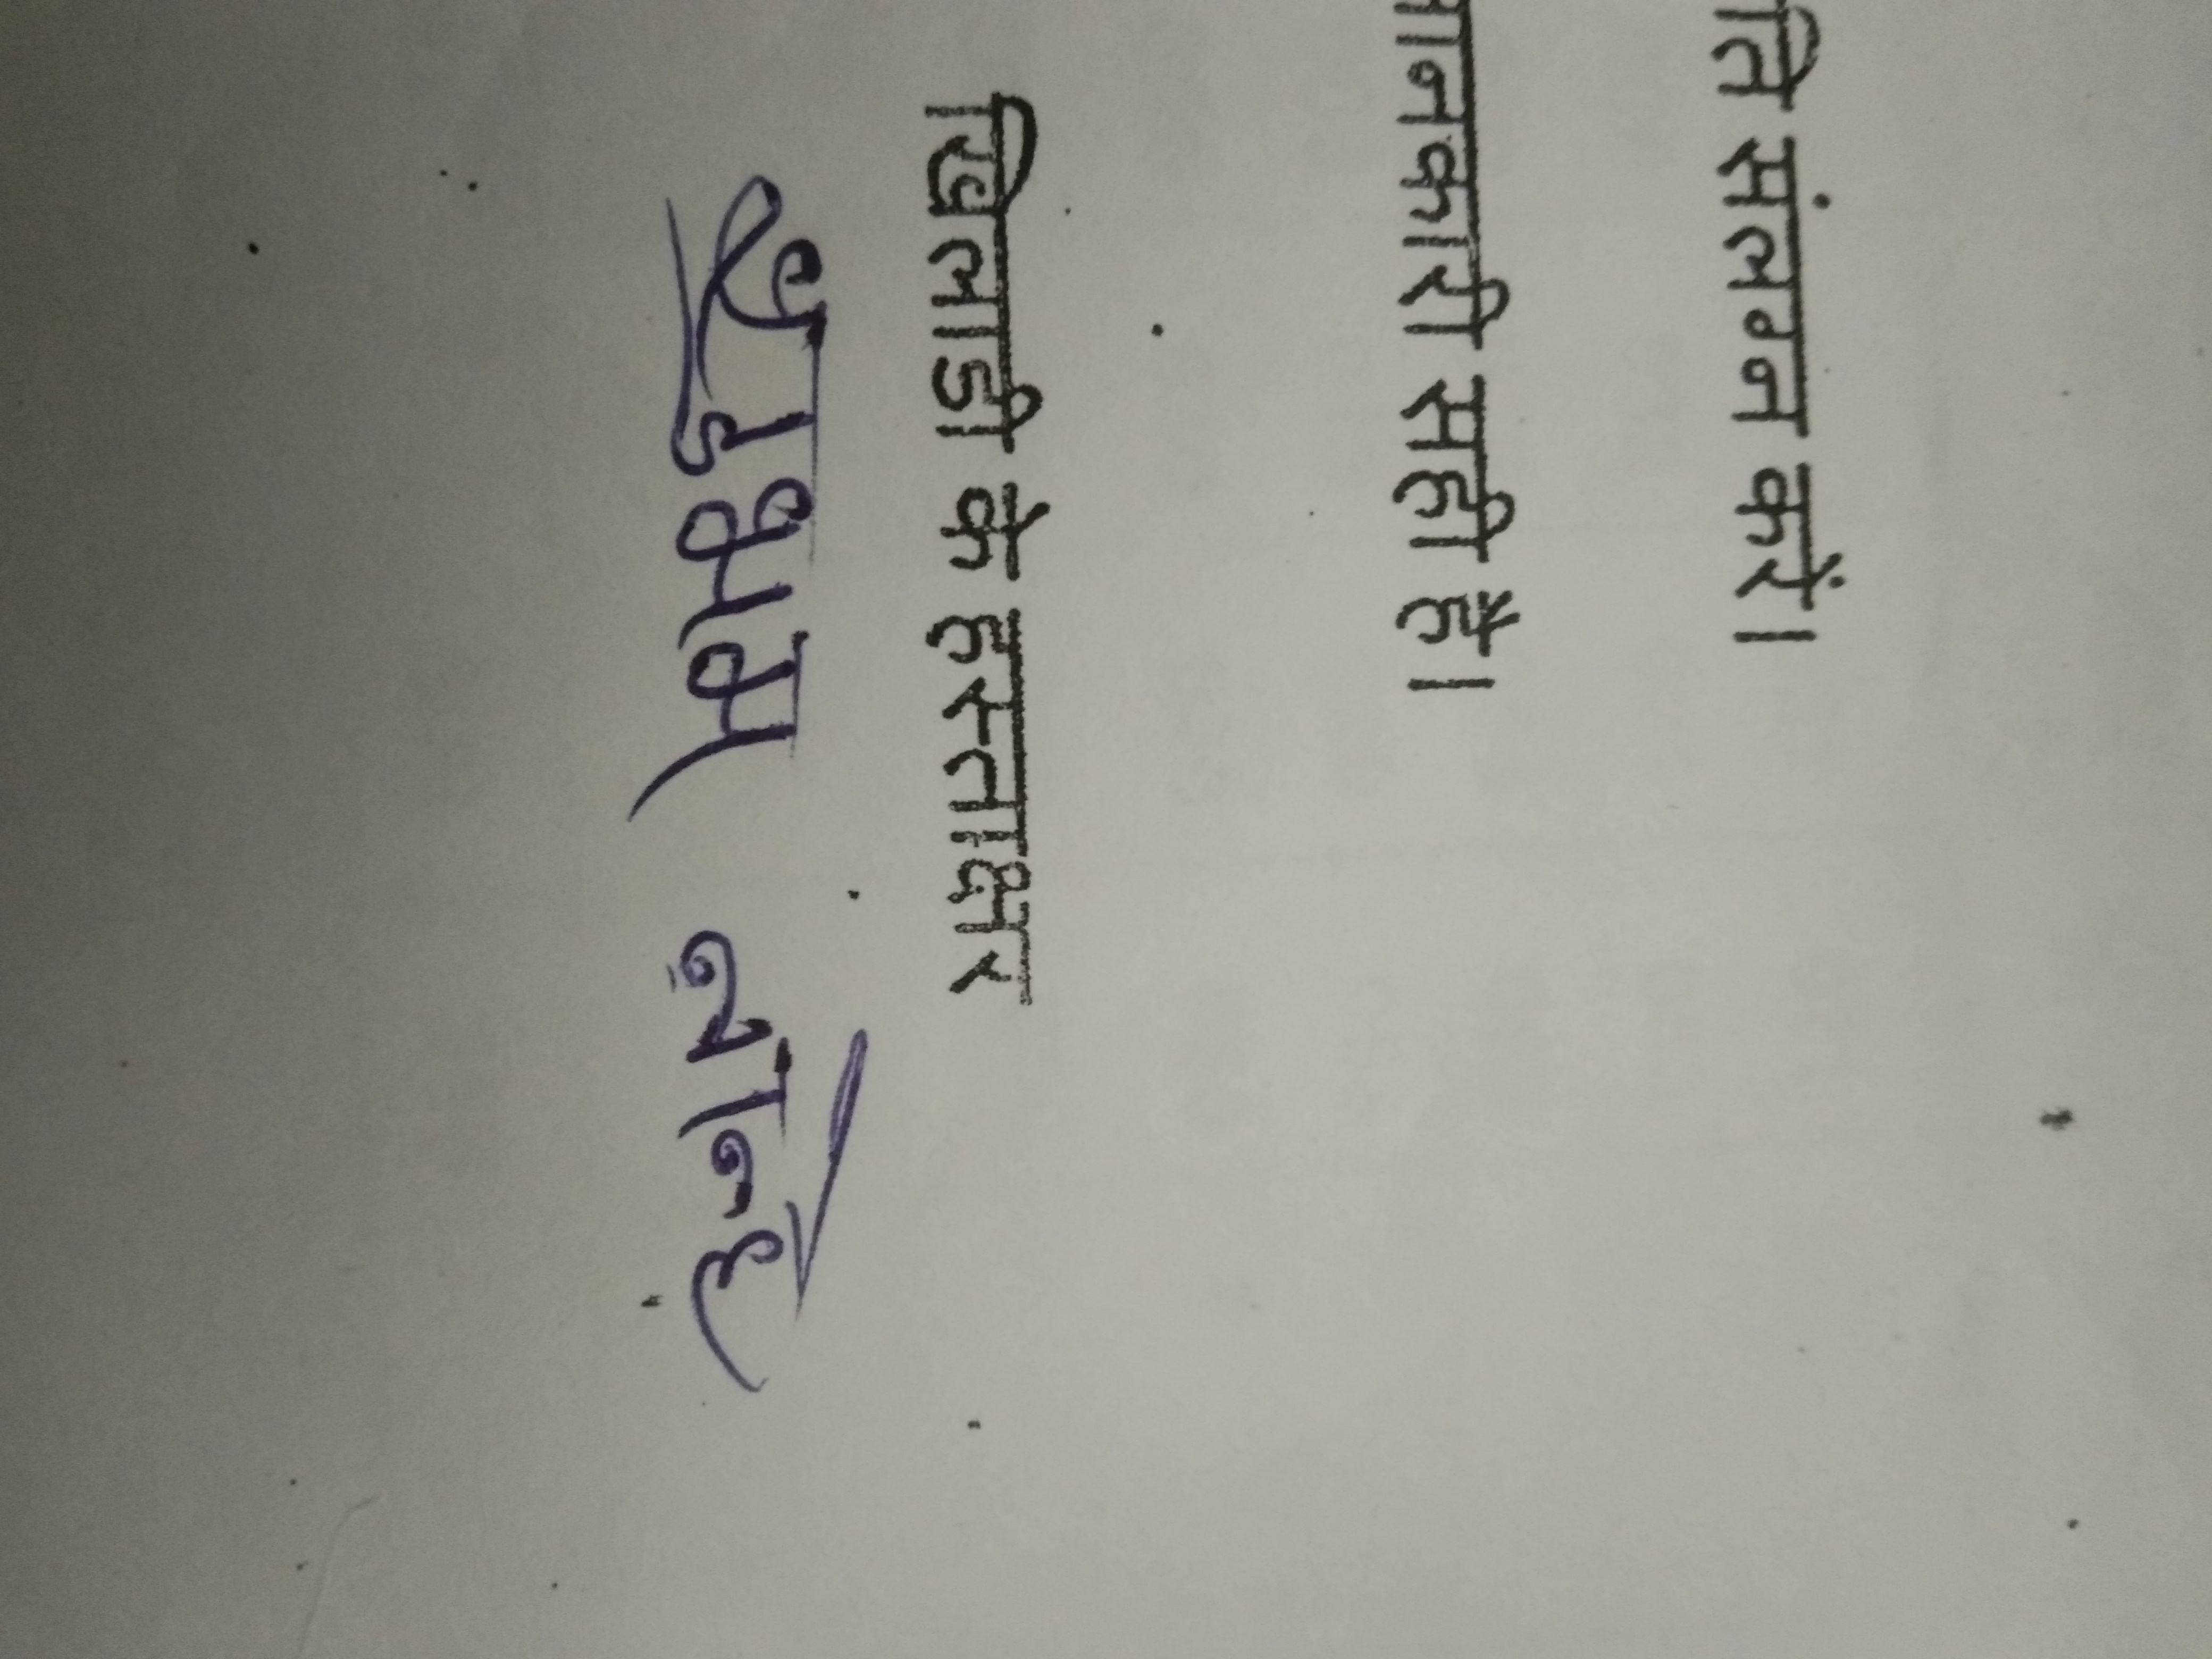 ति संलग्न करें।
जानकारी सही है।
खिलाडी के हस्ताक्षर
शुभम